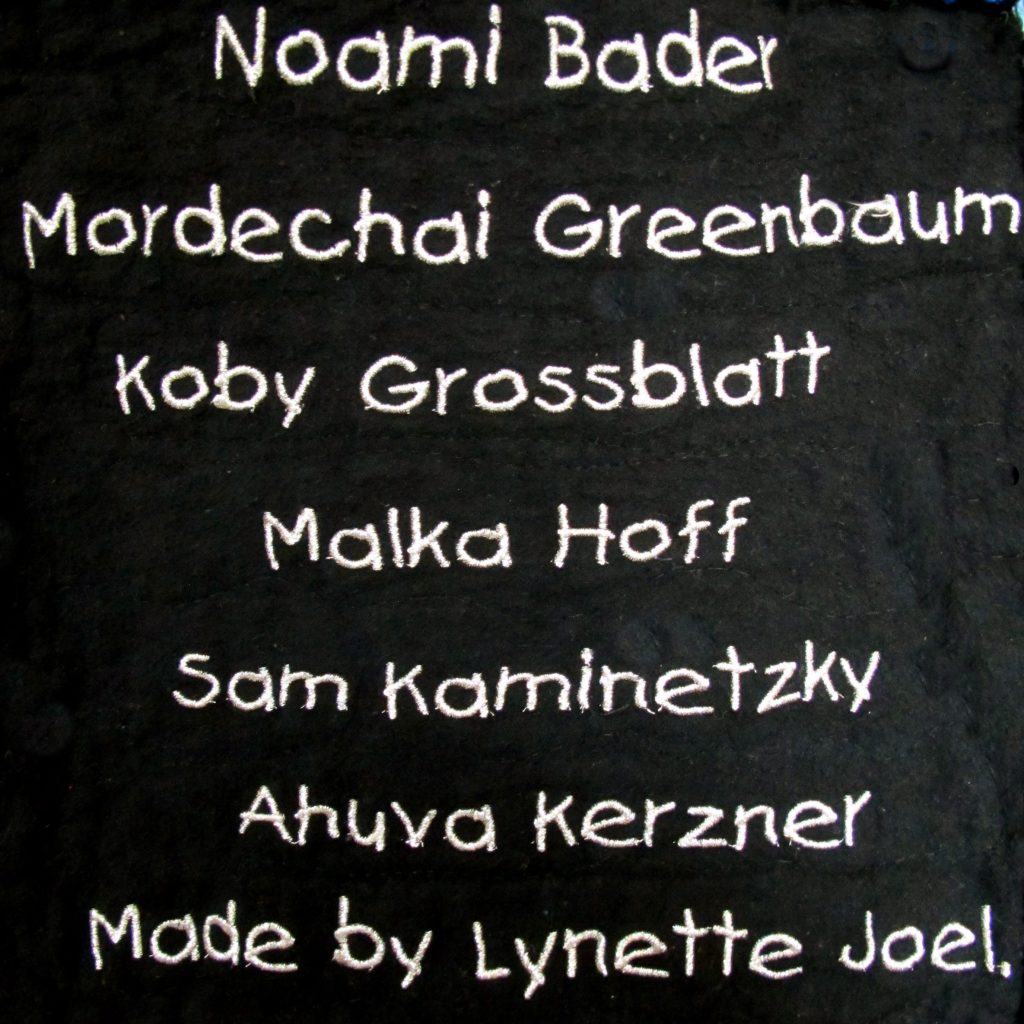 Noami Bader
Mordechai Greenbaum
Koby Grossblatt
Malka Hoff
Sam Kaminetzky
Ahuva Kerzner
Made by Lynette Joel.